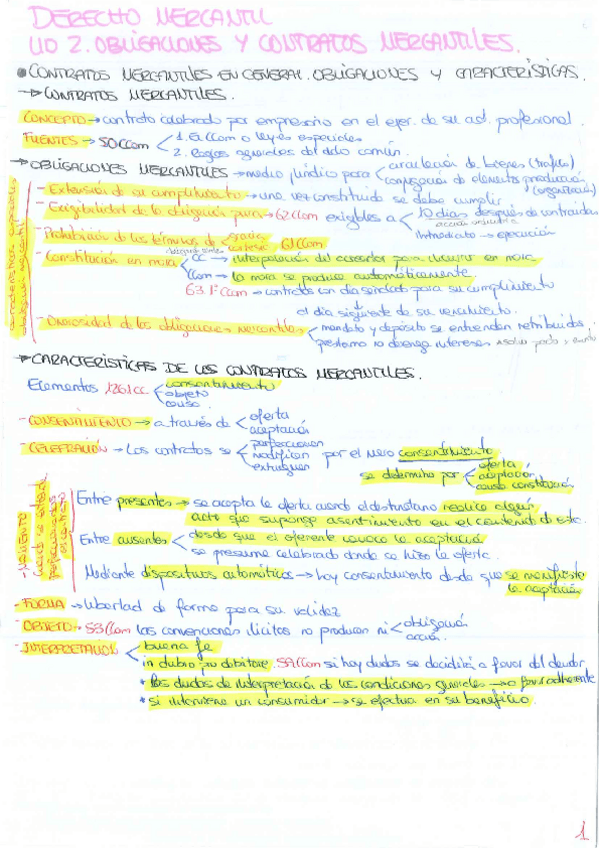 DERECHO MERCANTIL
UD 2. OBLIGACIONES Y CONTRATOS MERCANTILES.
• CONTRATOS MERCANTILES EN GENERAL. OBLIGACIONES Y CARACTERÍSTICAS.
→ CONTRATOS MERCANTILES.
CONCEPTO → contrato celebrado por empresario en el ejer. de su act. profesional.
FUENTES → 50 CCom
1. El CCom o leyes especiales
2. Reglas generales del dcho común.
→ OBLIGACIONES MERCANTILES → medio jurídico para
circulación de bienes (tráfico)
conjugación de elementos producción (organización)
características especiales obligación mercantil
- Extensión de su cumplimiento → una vez constituida se debe cumplir
- Exigibilidad de la obligación pura → 62 CCom exigibles a
10 días después de contraídas
acción ordinaria
Inmediato → ejecución
- Prohibición de los términos de gracia 61 CCom
- Constitución en mora
CC → interpelación del acreedor para incurrir en mora
CCom → la mora se produce automáticamente.
63.1º CCom → contratos con día señalado para su cumplimiento
al día siguiente de su vencimiento.
- Onerosidad de las obligaciones mercantiles
mandato y depósito se entienden retribuidos
préstamo no devenga intereses salvo pacto y escrito
→ CARACTERÍSTICAS DE LOS CONTRATOS MERCANTILES.
Elementos 1261 CC
consentimiento
objeto
causa
- CONSENTIMIENTO → a través de
oferta
aceptación
- CELEBRACIÓN → Los contratos se
perfeccionan
modifican
extinguen
por el mero consentimiento
se determina por
oferta
aceptación
causa constitución
- MOMENTO cuando se entiende perfeccionado el contrato
Entre presentes → se acepta la oferta cuando el destinatario realice algún
acto que suponga asentimiento en el contenido de este.
Entre ausentes
desde que el oferente conoce la aceptación
se presume celebrado donde se hizo la oferta.
Mediante dispositivos automáticos → hay consentimiento desde que se manifieste
la aceptación
- FORMA → libertad de forma para su validez
- OBJETO → 53 CCom las convenciones ilícitas no producen ni
obligación
acción.
- INTERPRETACIÓN
buena fe
in dubio pro debitore. 59 CCom si hay dudas se decidirá a favor del deudor
* las dudas de interpretación de las condiciones generales → a favor adherente
* si interviene un consumidor → se efectúa en su beneficio.
1